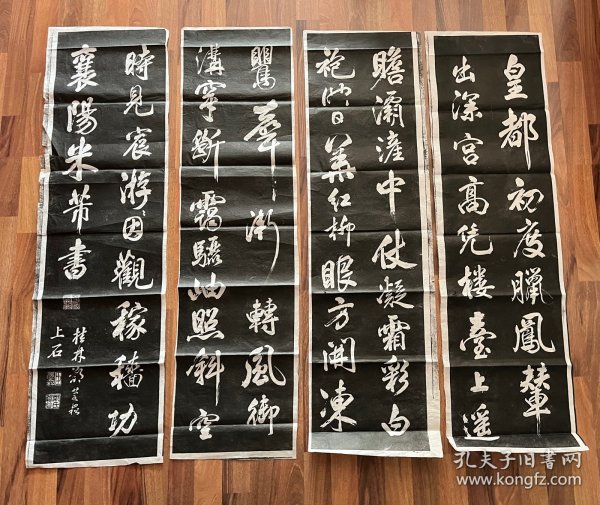 皇都初度臘鳳輦
出深宮高凭樓臺上遥
瞻灞滻中仗凝霜彩白
袍映日華紅柳眼方開凍
鶯聲漸轉風御
溝寧斷靄驪岫照斜空
時見宸游因觀稼穡功
襄陽米芾書
桂林
上石
孔夫子旧書网
www.kongfz.com